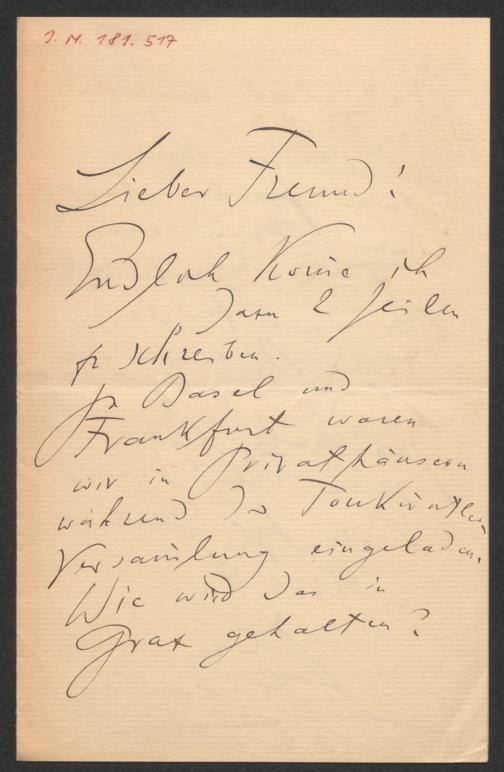 J. N. 181.517
Lieber Freund!
Endlich kom̅e ich
dazu 2 Zeilen
zu schreiben.
In Basel und
Frankfurt waren
wir in Privathäusern
während der Tonkünstler
Versam̅lung eingeladen.
Wie wird das in
Graz gehalten?